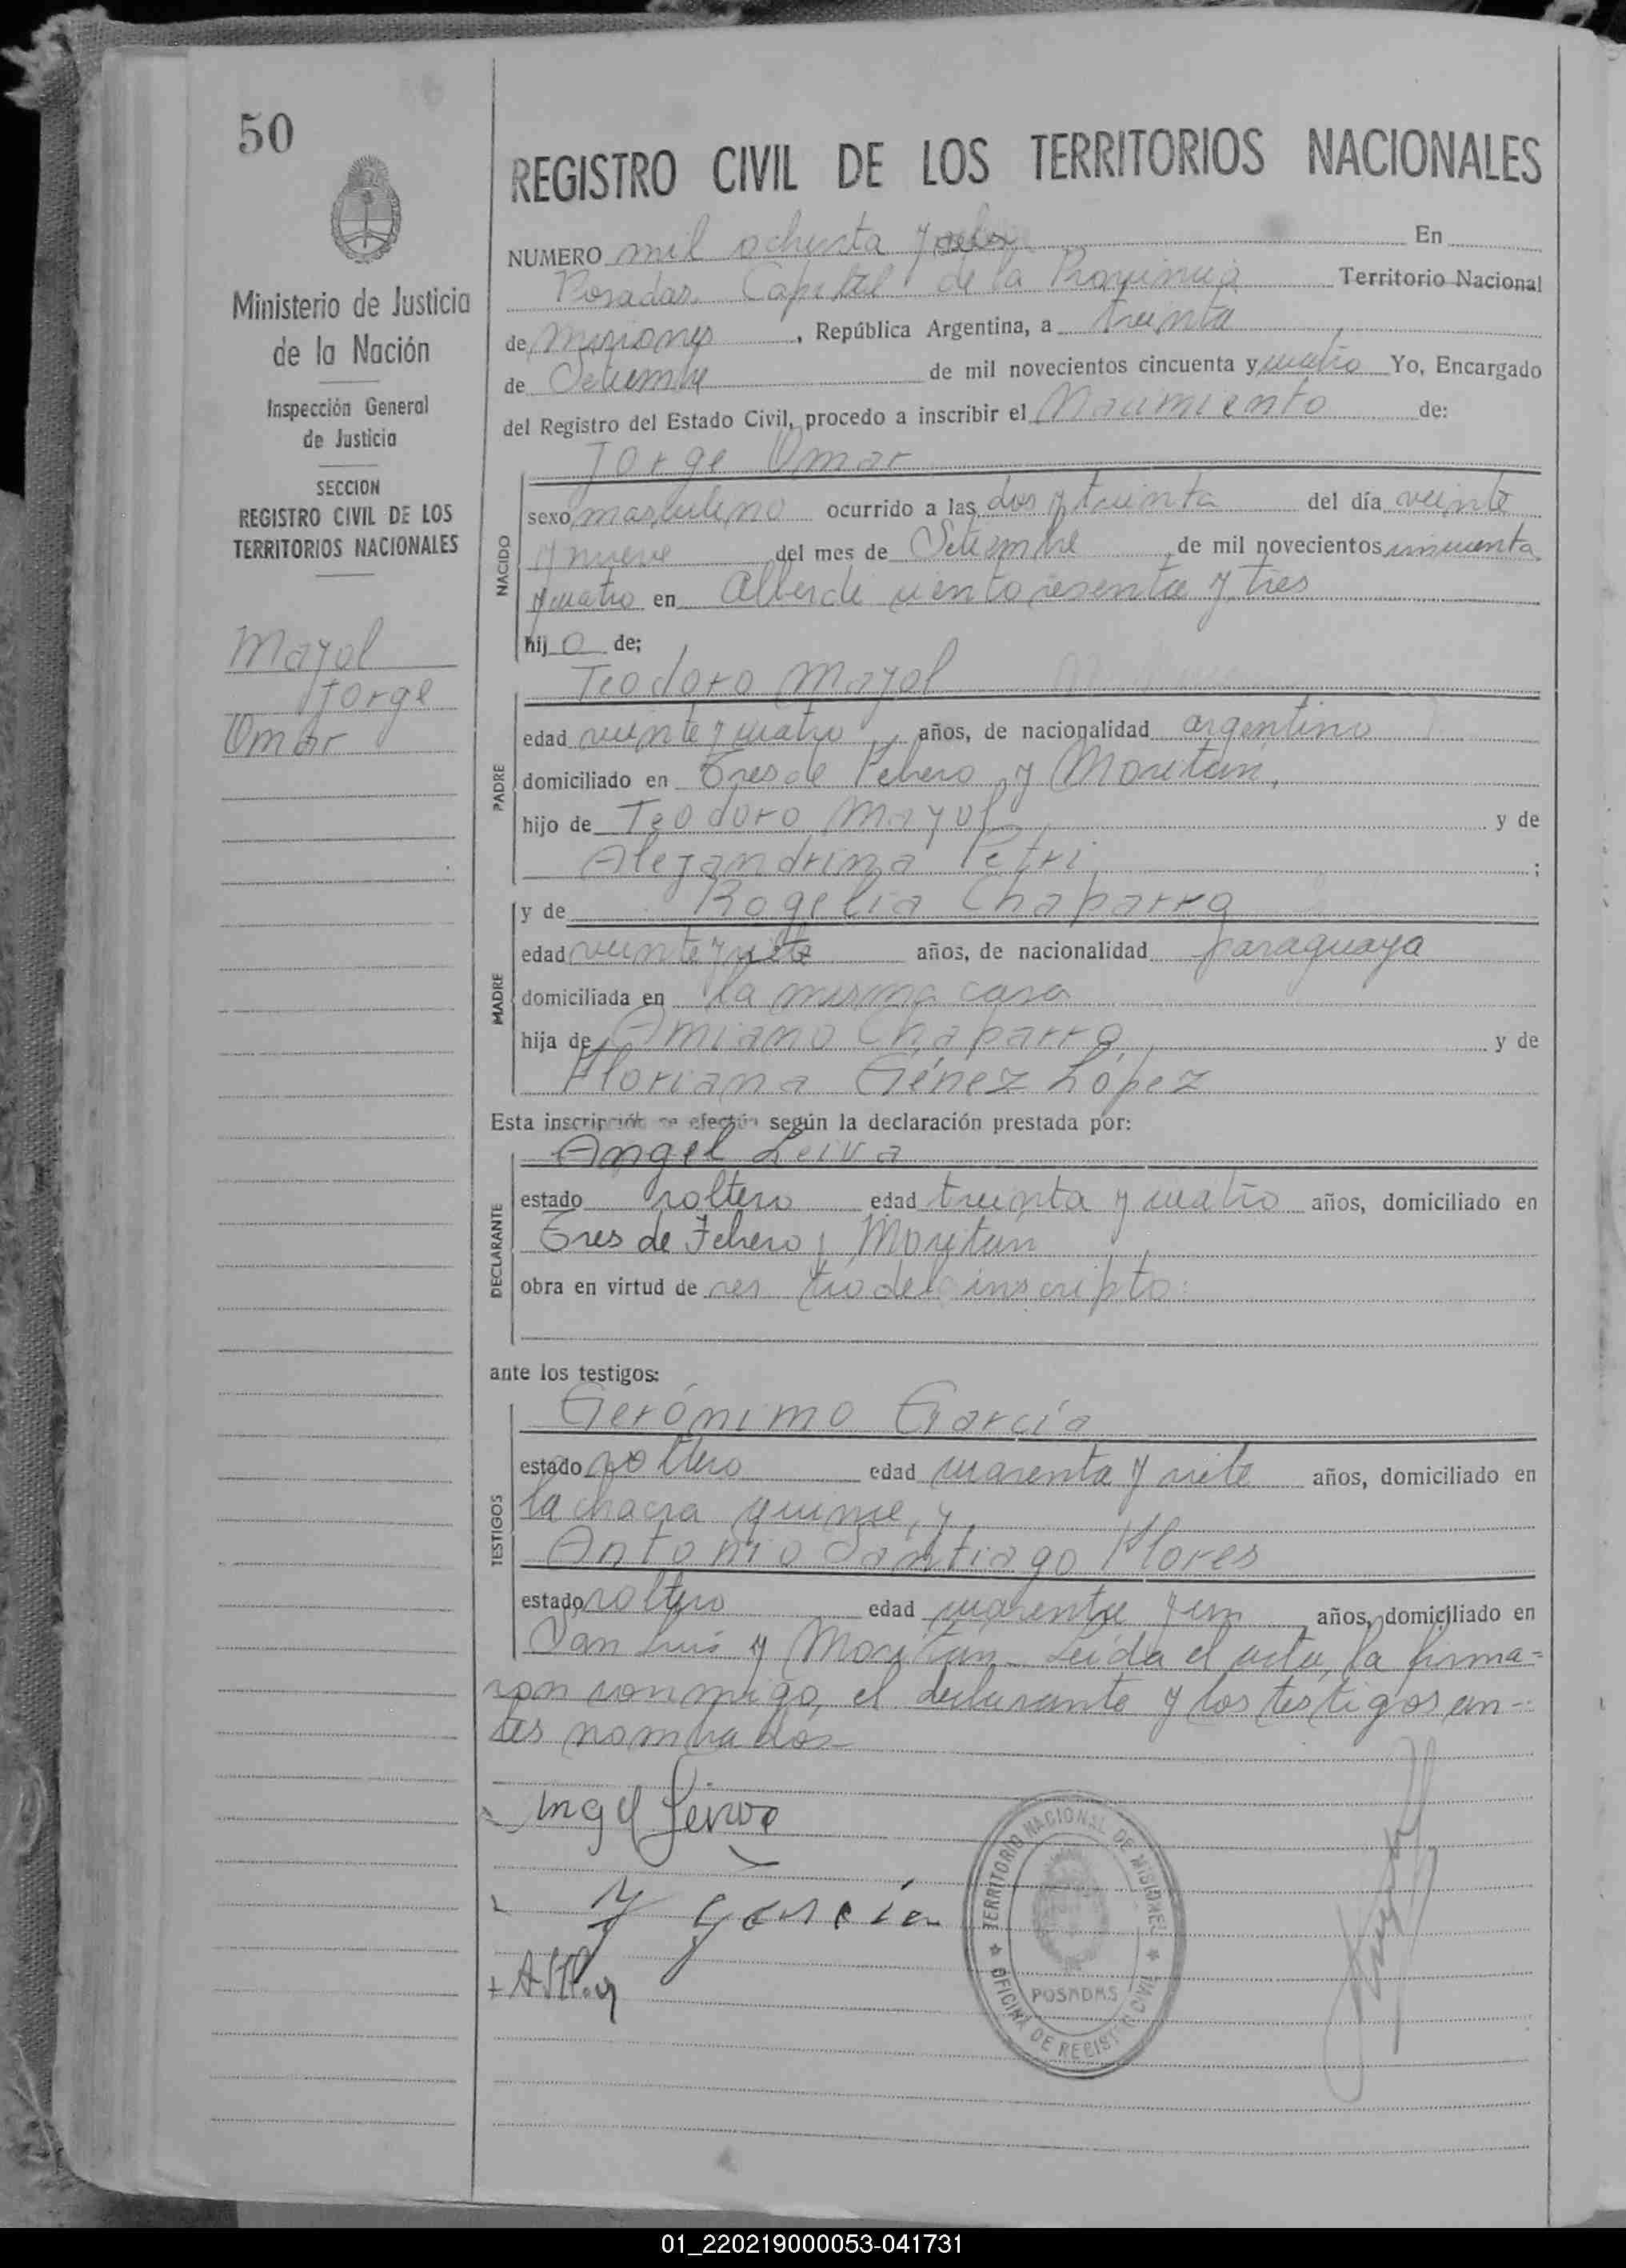 50
Ministerio de Justicia
de la Nación
Inspección General
de Justicia
SECCION
REGISTRO CIVIL DE LOS
TERRITORIOS NACIONALES
Mayol
Jorge
Omar
REGISTRO CIVIL DE LOS TERRITORIOS NACIONALES
NUMERO mil ochenta y En
Posadas Capital de la Provincia Territorio Nacional
de Misiones, República Argentina, a treinta
de Setiembre de mil novecientos cincuenta y cuatro Yo, Encargado
del Registro del Estado Civil, procedo a inscribir el Nacimiento de:
Jorge Omar
NACIDO
sexo masculino ocurrido a las dos y treinta del día veinte
y nueve del mes de Setiembre de mil novecientos cincuenta
y cuatro en Alberdi ciento sesenta y tres
hijo de;
Teodoro Mayol
PADRE
edad veinte y cuatro años, de nacionalidad argentino
domiciliado en Tres de Febrero y Moritán,
hijo de Teodoro Mayol y de
Alejandrina Petri ;
y de Rogelia Chaparro
MADRE
edad veinte y siete años, de nacionalidad paraguaya
domiciliada en la misma casa
hija de Amiano Chaparro y de
Floriana Génez López
Esta inscripción se efectúa según la declaración prestada por:
Angel Leiva
DECLARANTE
estado soltero edad treinta y cuatro años, domiciliado en
Tres de Febrero y Moritán
obra en virtud de ser tío del inscripto.
ante los testigos:
Gerónimo García
TESTIGOS
estado soltero edad cuarenta y siete años, domiciliado en
la chacra quince, y
Antonio Santiago Flores
estado soltero edad cuarenta y un años, domiciliado en
San Luis y Moritán. Leída el acta, la firma=
ron conmigo, el declarante y los testigos an-
tes nombrados
Angel Leiva
J García
TERRITORIO NACIONAL DE MISIONES
POSADAS
OFICINA DE REGISTRO CIVIL
01_220219000053-041731